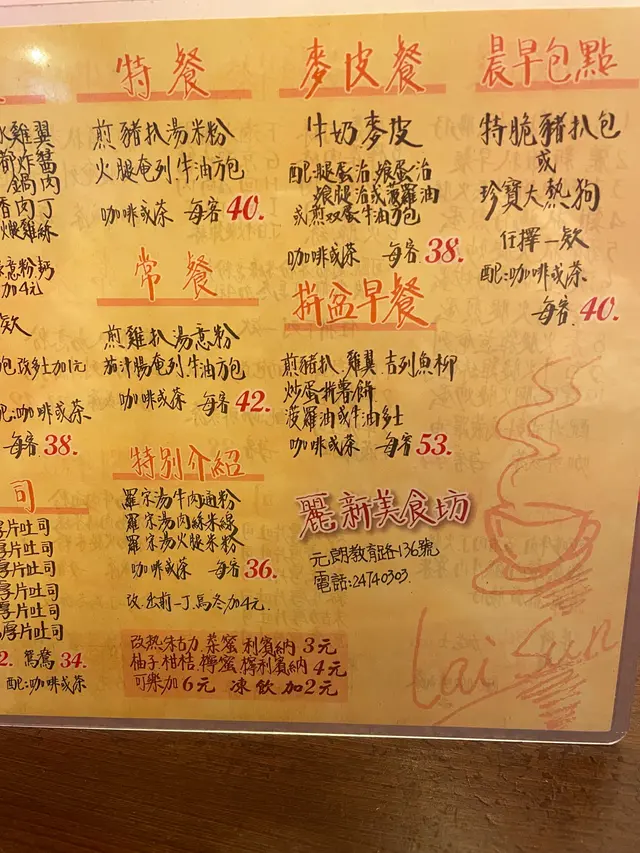 水雞翼
都炸蟹
鍋肉
香肉丁
火腿雞絲
意粉鈣
加4元
欵
包改多士加1元
配:咖啡或茶
每客38.
司
厚片吐司
厚片吐司
厚片吐司
厚片吐司
厚片吐司
厚片吐司
2. 鴛鴦34.
配:咖啡或茶
特餐
煎豬扒湯米粉
火腿奄列.牛油方包
咖啡或茶 每客40.
常餐
煎雞扒湯意粉
茄汁腸奄列.牛油方包
咖啡或茶 每客42.
特別介紹
羅宋湯牛肉通粉
羅宋湯肉絲米線
羅宋湯火腿米粉
咖啡或茶 每客36.
改.出前一丁.烏冬加4元.
改熱:朱古力.菜蜜.利賓納 3元
柚子.柑桔.檸蜜.檸利賓納 4元
可樂加6元 凍飲加2元
麥皮餐
牛奶麥皮
配:腿蛋治.餐蛋治
餐腿治或菠蘿油
或煎双蛋牛油方包
咖啡或茶 每客38.
拼盆早餐
煎豬扒.雞翼.吉列魚柳
炒蛋拼薯餅
菠蘿油或牛油多士
咖啡或茶 每客53.
麗新美食坊
元朗教育路136號
電話:24740303.
晨早包點
特脆豬扒包
或
珍寶大熱狗
任擇一欵
配:咖啡或茶
每客40.
Lai Sun